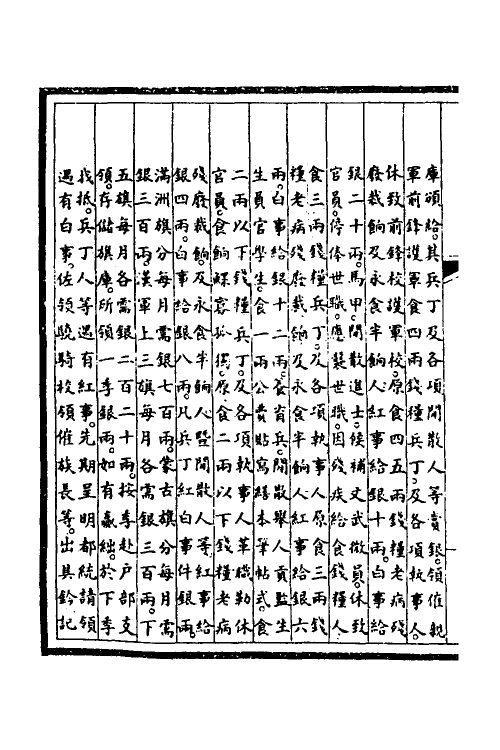 庫頒給。其兵丁及各項閒散人等賞銀。領催親
軍前鋒護軍食四兩錢糧兵丁。及各項執事人。
休致前鋒校護軍校。原食四五兩錢糧老病殘
廢裁餉及永食半餉人。紅事給銀十兩。白事給
銀二十兩。馬甲閒散進士。候補文武微員。休致
官員。停俸世職。應襲世職。因殘疾給食錢糧人
食三兩錢糧兵丁。及各項執事人。原食三兩錢
糧老病殘廢裁餉及永食半餉人。紅事給銀六
兩。白事給銀十二兩。養育兵。閒散舉人貢監生
生員官學生。食一兩公費貼寫繕本筆帖式。食
二兩以下錢糧兵丁。及各項執事人革職勒休
官員。食餉鰥寡孤獨。原食二兩以下錢糧老病
殘廢裁餉及永食半餉人。暨閒散人等。紅事給
銀四兩。白事給銀八兩。凡兵丁紅白事件銀兩。
滿洲旗分每月需銀七百兩。蒙古旗分每月需
銀三百兩。漢軍上三旗每月各需銀三百兩。下
五旗每月各需銀二百二十兩。按季赴戶部支
領。存儲旗庫。所領一季銀兩。如有贏絀。於下季
找抵。兵丁人等遇有紅事。先期呈明都統請領
遇有白事。佐領驍騎校領催族長等。出具鈐記